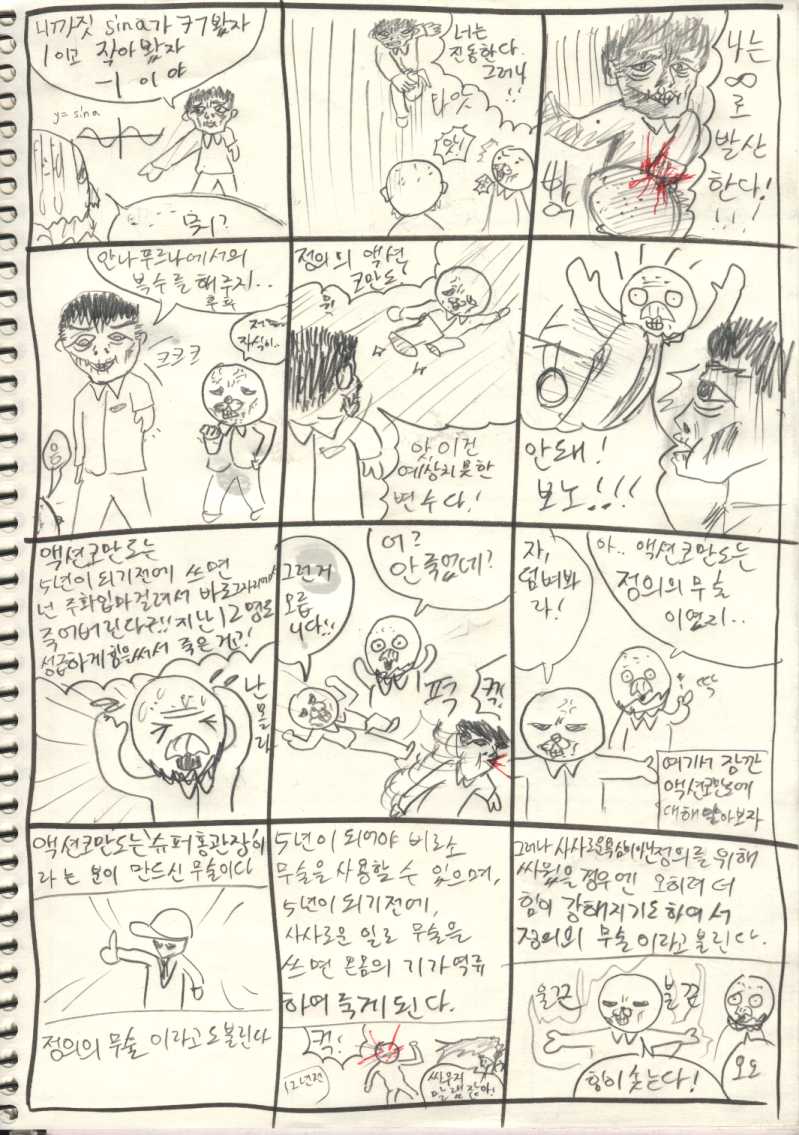 니까짓 sina가 커봤자
1이고 작아봤자
-1 이야
y= sina
뭐?
너는
진동한다.
그러나
!!
타앗
앗!!
나는
∞
로
발산
한다!
!!!
퍽
안나푸르나에서의
복수를 해주지..
후화
크크크
저..
자식이..
음
정의의 액션
코만도!
앗, 이건
예상치못한
변수다!
안돼!
보노!!!
액션코만도는
5년이 되기전에 쓰면
넌 주화입마걸려서 바로그자리에서
죽어버린다구!! 지난 12명도
성급하게 힘을써서 죽은거고!
난
몰라
그런거
모릅
니다!!
어?
안죽었네?
퍽
컥!
자,
덤벼봐
라!
아.. 액션코만도는
정의의 무술
이였지..
딱
여기서 잠깐
액션코만도에
대해 알아보자
액션코만도는 '슈퍼홍관장'이
라는 분이 만드신 무술이다
정의의 무술 이라고도불린다
5년이 되어야 비로소
무술을 사용할 수 있으며,
5년이 되기전에,
사사로운 일로 무술을
쓰면 온몸의 기가역류
하여 죽게된다.
컥!
12년전
싸우지
말램잖아!
그러나 사사로운욕심이아닌정의를 위해
싸웠을 경우엔 오히려 더
힘이 강해지기도하여서
정의의 무술 이라고불린다.
울끈
불끈
힘이솟는다!
오오